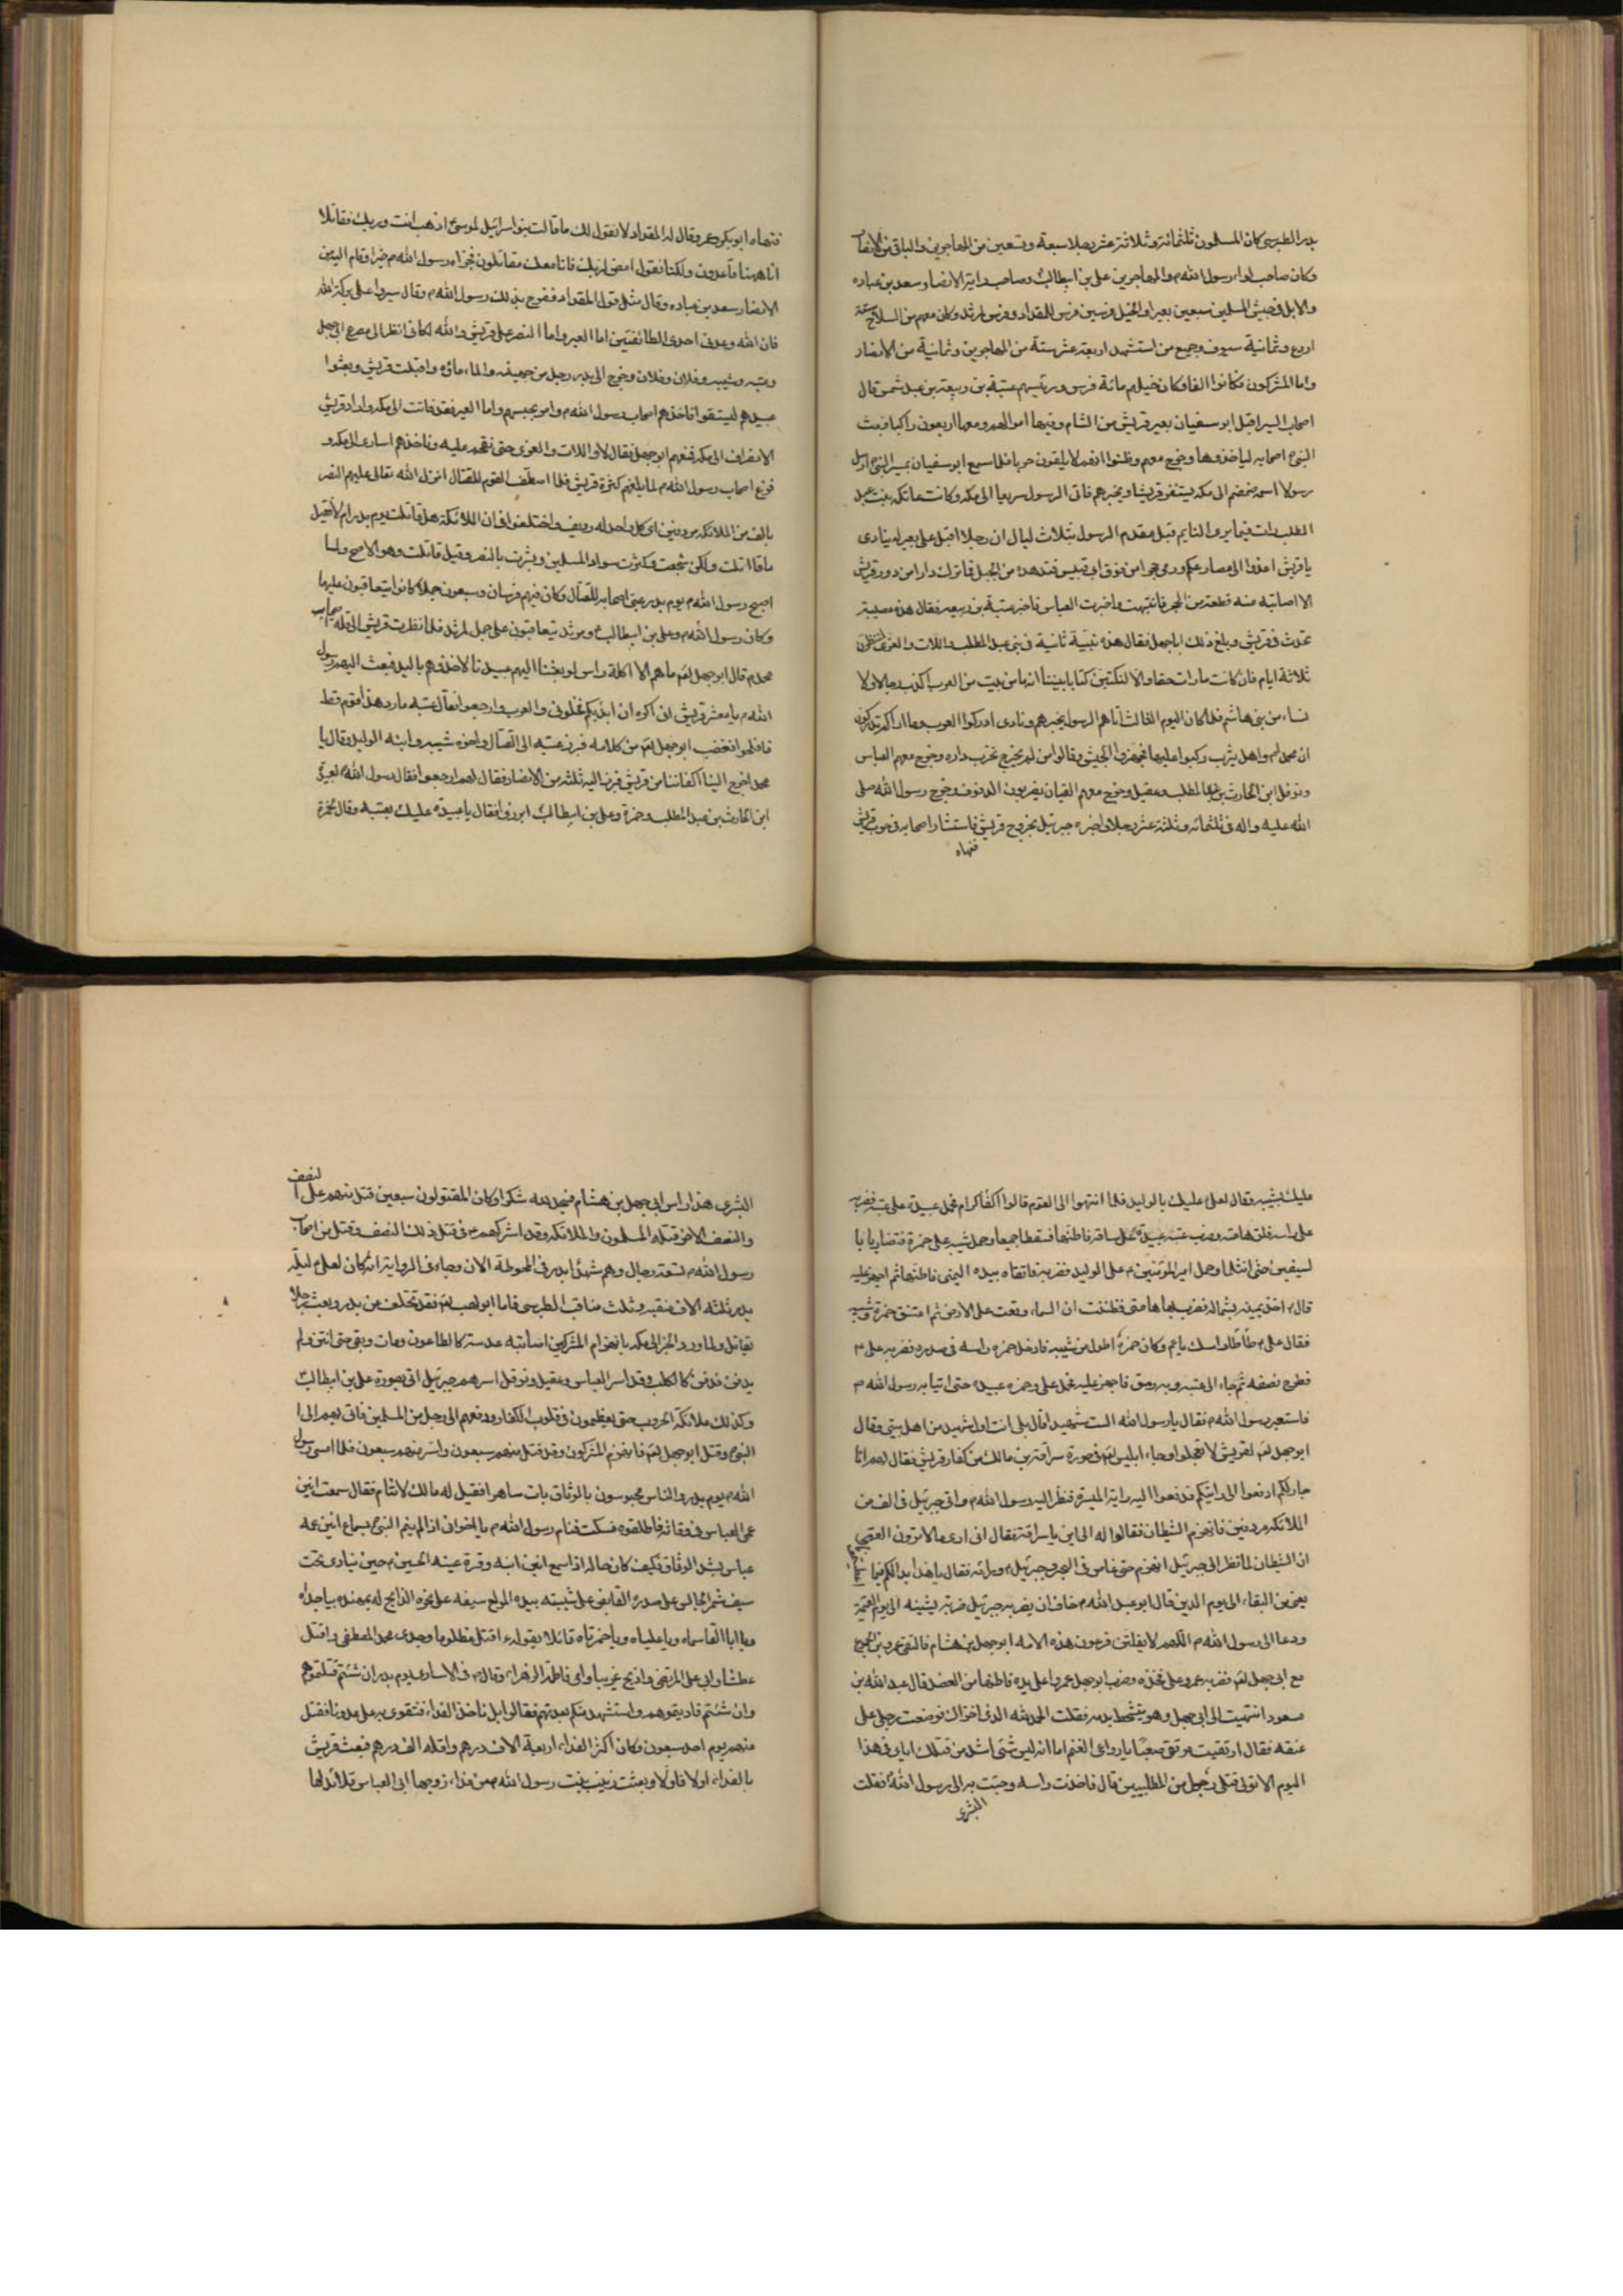 بدر الطبرسى كان المسلمون ثلثمائة وثلاثة عشر رجلا سبعة وتسعين من المهاجرين والباقى من الانصار
وكان صاحب لواء رسول الله م والمهاجرين على بن ابيطالب وصاحب راية الانصار سعد بن عباده
والابل فى جيش المسلمين سبعين بعيرا والخيل فرسين فرس للمقداد وفرس لمرثد وكان معهم من السلاح ستة
ادرع وثمانية سيوف وجميع من استشهد اربعة عشر ستة من المهاجرين وثمانية من الانصار
واما المشركون فكانوا الفا وكان خيلهم مائة فرس ورئيسهم عتبة بن ربيعة بن عبد شمس قال
اصحاب السير اقبل ابو سفيان بعير قريش من الشام وفيها اموالهم ومعها اربعون راكبا فبعث
النبى اصحابه لياخذوها وخرج معهم وظنوا انهم لا يلقون حربا فلما سمع ابو سفيان بمسير النبى ارسل
رسولا اسمه ضمضم الى مكه يستنفر قريشا ويخبرهم فاتى الرسول سريعا الى مكه وكانت عاتكه بنت عبد
المطلب رات فيما يرى النايم قبل مقدم الرسول بثلاث ليال ان رجلا اقبل على بعير له ينادى
يا قريش اغدوا الى مصارعكم ورمى حجرا من فوق ابى قبيس فتدهده من الجبل فما ترك دارا من دور قريش
الا اصابته منه قطعة من الحجر فانتبهت واخبرت العباس فاخبر عتبة بن ربيعه فقال هذه مصيبة
تحدث فى قريش وبلغ ذلك اباجهل فقال هذه نبيّة ثانية فى بنى عبد المطلب واللات والعزى لننظرن
ثلاثة ايام فان كانت ما رات حقا والا لنكتبن كتابا بيننا انه ما من بيت من العرب اكذب رجالا ولا
نساء من بنى هاشم فلما كان اليوم الثالث اتاهم الرسول يخبرهم ونادى ادركوا العرب وما اراكم تدركون
ان محمدا م واهل يثرب ركبوا عليها فتجهزوا الجيش وقالوا من لم يخرج نخرب داره وخرج معهم العباس
ونوفل ابن الحارث بن عبد المطلب وعقيل وخرج معهم القيان يضربون الدفوف وخرج رسول الله صلى
الله عليه واله فى ثلثمائه وثلثة عشر رجلا واخبره جبرئيل بخروج قريش فاستشار اصحابه فى حرب قريش
فنهاه
فنهاه ابو بكر وعمر وقال له المقداد لا نقول لك ما قالت بنو اسرائيل لموسى اذهب انت وربك فقاتلا
انا هيهنا قاعدون ولكنا نقول امض لربك فانا معك مقاتلون فجزاه رسول الله م خيرا وقام اليه من
الانصار سعد بن عباده وقال مثل قول المقداد ففرح بذلك رسول الله م وقال سيروا على بركة الله
فان الله وعدنى احدى الطائفتين اما العير واما النصر على قريش والله لكانى انظر الى مصرع ابى جهل
وعتبه وشيبه وفلان وفلان وخرج الى بدر رجل من جهينه والماء ماؤه واقبلت قريش وبعثوا
عبيدهم ليستقوا فاخذهم اصحاب رسول الله م وامر بحبسهم واما العير فقد فاتت الى مكه واراد قريش
الانصراف الى مكه فمنعهم ابو جهل فقال لا واللات والعزى حتى نقحم عليه وناخذهم اسارى الى مكه و
فزع اصحاب رسول الله م لما بلغهم كثرة قريش فلما اصطف القوم للقتال انزل الله تعالى عليهم النصر
بالف من الملائكه مردفين اى كل واحد له رديف واختلفوا فى ان الملائكة هل قاتلت يوم بدر ام لا قيل
ما قاتلت ولكن شجعت وكثرت سواد المسلمين وبشرت بالنصر وقيل قاتلت وهو الاصح ولما
اصبح رسول الله م يوم بدر عبى اصحابه للقتال وكان فيهم فرسان وسبعون جملا كانوا يتعاقبون عليها
وكان رسول الله م وعلى بن ابيطالب ومرثد يتعاقبون على جمل لمرثد فلما نظرت قريش الى قلة اصحاب
محمد م قال ابو جهل لعنه ما هم الا اكلة راس لو بعثنا اليهم عبيدنا لاخذوهم باليد فبعث اليهم رسول
الله م يا معشر قريش انى اكره ان ابدئكم فخلونى والعرب وارجعوا فقال عتبه ما رد هذا قوم قط
فافلحوا فغضب ابو جهل لعنه من كلامه فبرز عتبه الى القتال واخوه شيبه وابنه الوليد وقال يا
محمد اخرج الينا اكفائنا من قريش فبرز اليه ثلثة من الانصار فقال لهم ارجعوا فقال رسول الله م لعبيدة
ابن الحارث بن عبد المطلب وحمزة وعلى بن ابيطالب ابرزوا فقال يا عبيده عليك بعتبه وقال لحمزة
عليك بشيبه وقال لعلى عليك بالوليد فلما انتهوا الى القوم قالوا اكفاء كرام فحمل عبيدة على عتبه فضربه
على راسه فلق هامته وضرب عتبه عبيدة على ساقه فاطنها فسقطا جميعا وحمل شيبه على حمزة فتضاربا با
لسيفين حتى انثلما وحمل امير المؤمنين م على الوليد فضربه فاتقاه بيده اليمنى فاطنها ثم اجهز عليه
قال م اخذ يمينه بشماله فضرب بها هامتى فظننت ان السماء وقعت على الارض ثم اعتنق حمزة وشيبه
فقال على م طأطأ راسك ياعم وكان حمزة اطول من شيبه فادخل حمزه راسه فى صدره فضربه على م
فطرح نصفه ثم جاء الى عتبه وبه رمق فاجهز عليه فحمل على وحمزه عبيدة حتى اتيا به رسول الله م
فاستعبر رسول الله م فقال يا رسول الله الست شهيدا قال بلى انت اول شهيد من اهل بيتى وقال
ابو جهل لعنه لقريش لا تعجلوا وجاء ابليس لعنه فى صورة سراقة بن مالك من كفار قريش فقال لهم انا
جار لكم ادفعوا الى رايتكم فدفعوا اليه راية الميسرة فنظر اليه رسول الله م واتى جبرئيل فى الف من
الملائكه مردفين فانهزم الشيطان فقالوا له الى اين يا سراقة فقال انى ارى ما لا ترون
ان الشيطان لما نظر الى جبرئيل انهزم حتى غاص فى البحر وجبرئيل ورائه فقال يا هذا ابدا لكم فيما
يعنى من البقاء الى يوم الدين قال ابو عبد الله م خاف ان يضربه جبرئيل ضربة يشينه الى يوم القيمة
ودعا الى رسول الله م اللهم لا يفلتن فرعون هذه الامه ابو جهل بن هشام فالتقى عمرو بن الجموح
مع ابى جهل لعنه فضربه عمرو على فخذه وضرب ابو جهل عمروا على يده فاطنها من العضد قال عبد الله بن
مسعود انتهيت الى ابى جهل وهو يتشحط بدمه فقلت الحمد لله الذى اخزاك فوضعت رجلى على
عنقه فقال ارتقيت مرتقى صعبا يا رواعى الغنم اما انه ليس شئ اشد من قتلك اياى فى هذا
اليوم الا تولى قتلى رجل من المطلبيين قال فاخذت راسه وجئت به الى رسول الله م فقلت
البشرى
البشرى هذا راس ابى جهل بن هشام فسجد لله شكرا وكان المقتولون سبعين قتل منهم على النصف
والنصف الاخر قتله المسلمون والملائكه وقد اشركهم م فى قتل ذلك النصف وقتل من اصحاب
رسول الله م تسعة رجال وهم شهداء بدر فى المحوطة الان وجاء فى الرواية انه كان لعلى م ليلة
بدر ثلثه الاف منقبه وثلث مناقب الطبرسى فاما ابو لهب لعنه فقد تخلف عن بدر وبعث رجلا
يقاتل ولما ورد الخبر الى مكه بانهزام المشركين اصابته عدسة كالطاعون ومات وبقى حتى انتن ولم
يدفن فدفن كالكلب وقد اسر العباس وعقيل ونوفل اسرهم جبرئيل اتى بصورة على بن ابيطالب
وكذلك ملائكة الحروب حتى يعظمون فى قلوب الكفار ودفعهم الى رجل من المسلمين فاتى بهم الى ا
النبى وقتل ابو جهل لعنه فانهزم المشركون وقد قتل منهم سبعون واسر منهم سبعون فلما امسى رسول
الله م يوم بدر والناس محبوسون بالوثاق بات ساهرا فقيل له مالك لا تنام فقال سمعت انين
عمى العباس فى وثاقه فاطلقوه فسكت فنام رسول الله م يا اخوانى اذا لم ينم النبى بسماع انين عمه
عباس بشد الوثاق فكيف كان حاله اذا سمع انين ابنه وقرة عينه الحسين م حين ينادى تحت
سيف شمر الجالس على صدره القابض على شيبته بيده المولع سيفه على نحره الذابح له بمهنده يا جداه
ويا ابا القاسماه ويا علياه ويا حمزتاه قائلا بقوله ء اقتل مظلوما وجدى محمد المصطفى واقتل
عطشا وابى على المرتضى واذبح غريبا وامى فاطمة الزهراء وقال م فى الاسارى يوم بدر ان شئتم قتلتموهم
وان شئتم فاديتموهم واستشهد منكم بعدتهم فقالوا بل ناخذ الفداء فنتقوى به على عدونا فقتل
منهم يوم احد سبعون وكان اكثر الفداء اربعة الاف درهم واقله الف درهم فبعث قريش
بالفداء اولا فاولا وبعثت زينب بنت رسول الله ص من فداء زوجها ابى العباس قلائد لها